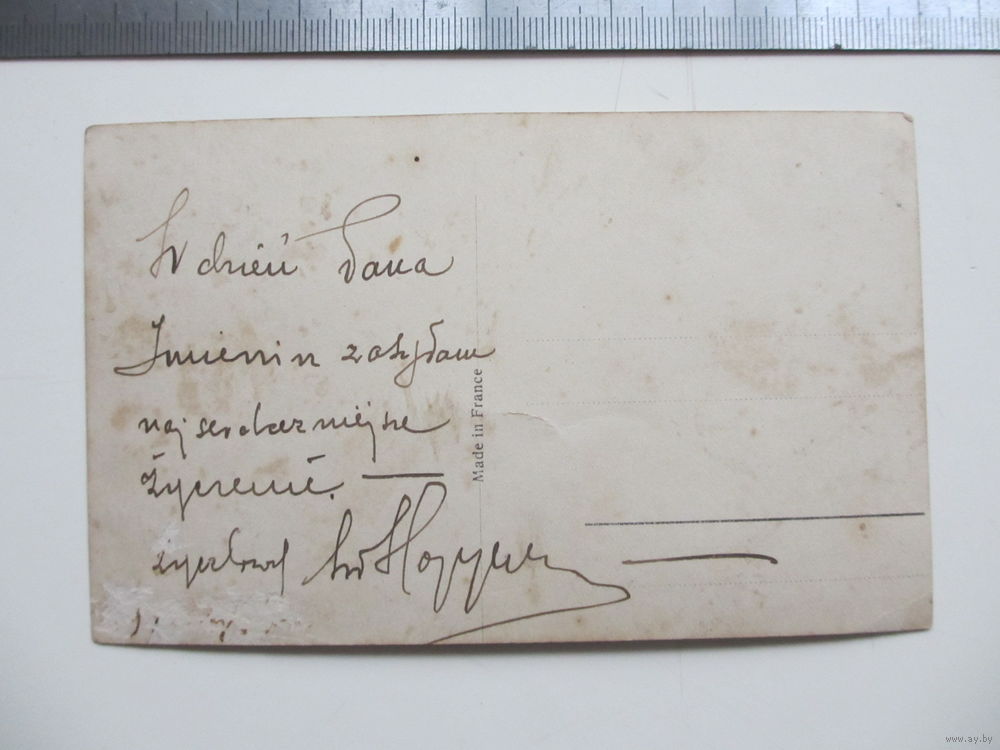 W dzień Pana
Imienin zasyłam
najserdeczniejsze
Życzenie.
życzliwy
Made in France
www.ay.by